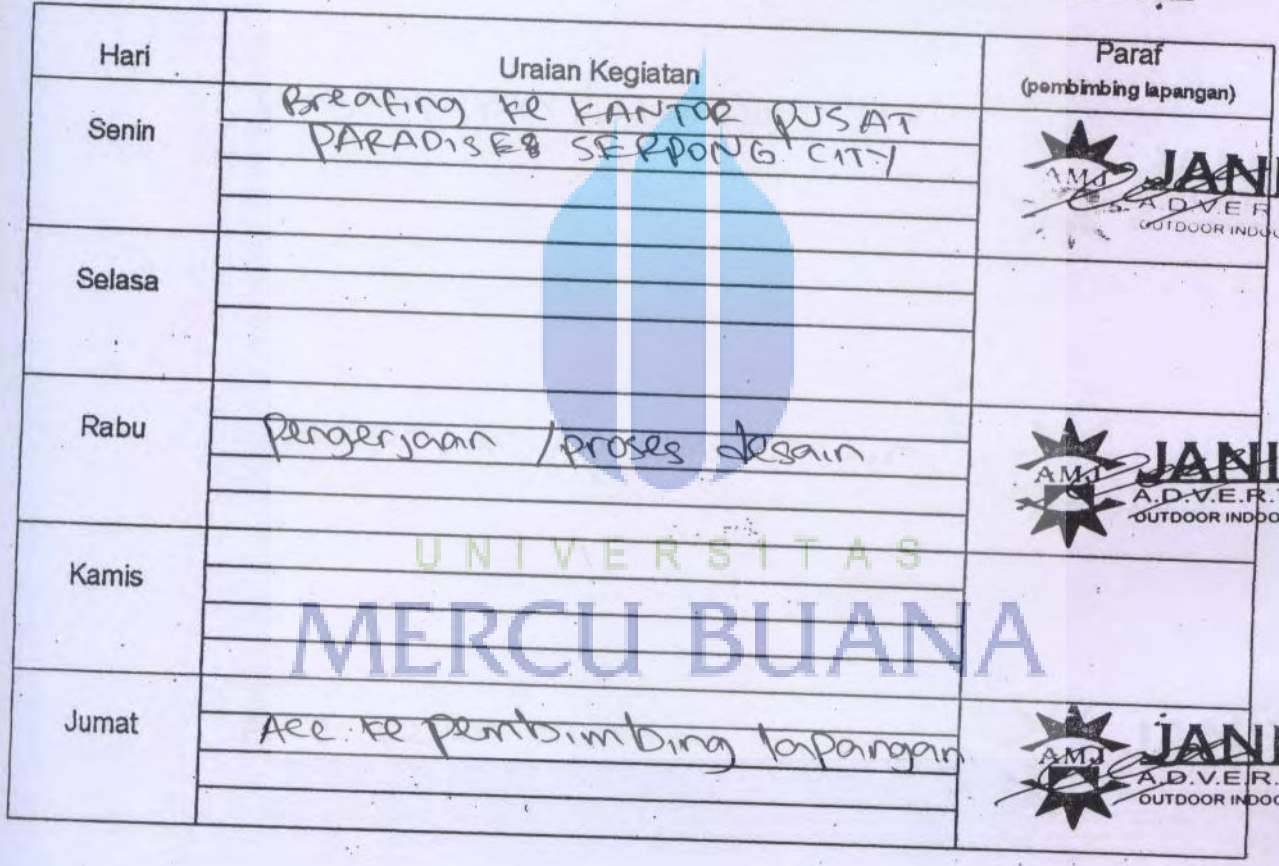 Hari
Uraian Kegiatan
Paraf
(pembimbing lapangan)
Senin
Breafing ke KANTOR PUSAT
PARADISE SERPONG CITY
AMJ JANI
A.D.V.E.R
OUTDOOR INDOO
Selasa
Rabu
Pengerjaan / proses desain
AMJ JANI
A.D.V.E.R.
OUTDOOR INDOO
UNIVERSITAS
Kamis
MERCU BUANA
Jumat
Acc ke pembimbing lapangan
AMJ JANI
A.D.V.E.R.
OUTDOOR INDOO